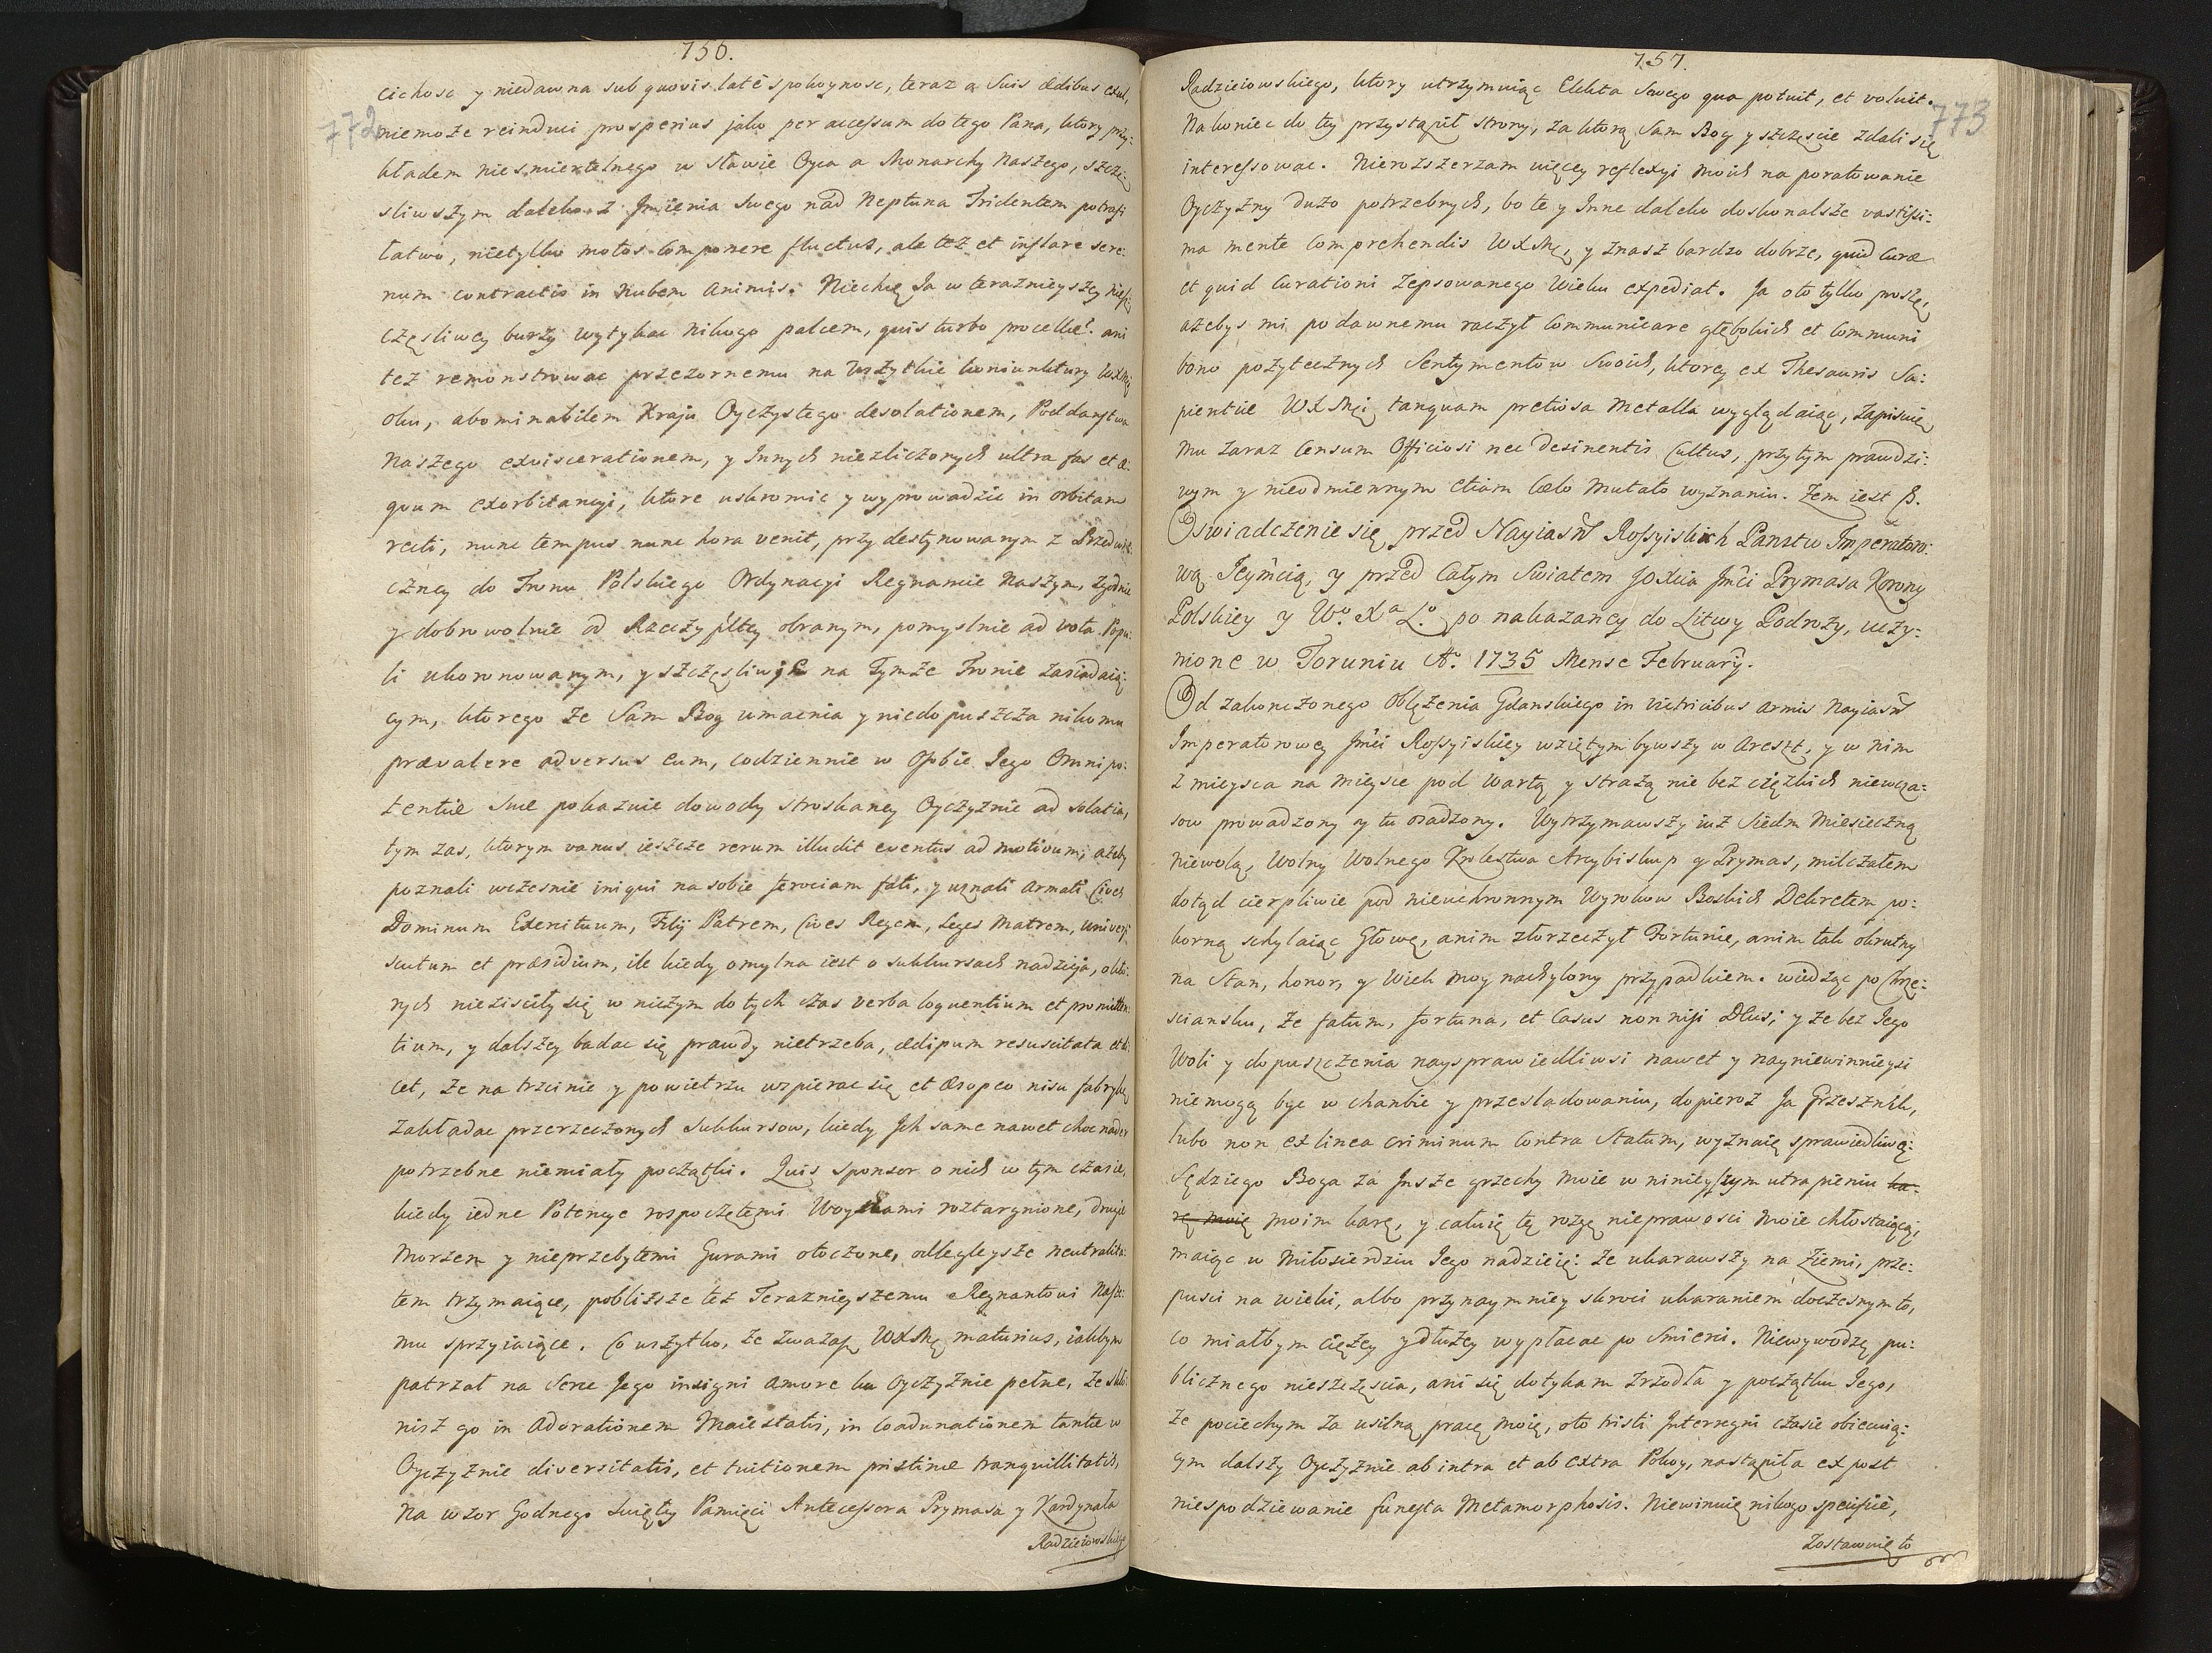 756.
772
cichosc y niedawna sub quovis late spokoynosc, teraz a Suis ædibus exul,
niemoże reinduci prosperius jako per accessum do tego Pana, ktory przy:
kładem niesmiertelnego w sławie Oyca a Monarchy Naszego, szczę:
sliwszym daleko z Jmienia Swego nad Neptuna Tridentem potrafi
łatwo, nietylko motos componere fluctus, ale też et inflare sere:
num contractis in nubem animis. Niechcę Ja w teraznieyszey niesz:
częsliwey burzy wytykac nikogo palcem, quis turbo procellæ? ani
też remonstrowac przezornemu na wszytkie koniunktury WXMci
oku, abominabilem Kraju Oyczystego desolationem, Poddanstwa
Naszego eviscerationem, y Innych niezliczonych ultra fas et æ:
quum exorbitancyi, ktore uskromic y wyprowadzic in orbitam
recti, nunc tempus nunc hora venit, przy destynowanym z Przedwie:
czney do Tronu Polskiego Ordynacyi Regnancie Naszym, zgodnie
y dobrowolnie od Rzeczypltey obranym, pomyslnie ad vota Popu:
li ukoronowanym, y szczęsliwie na Tymże Tronie zasiadaią:
cym, ktorego że Sam Bog umacnia y niedopuszcza nikomu
prævalere adversus eum, codziennie w Osobie Jego Omnipo:
tentiæ Suæ pokazuie dowody stroskaney Oyczyznie ad solatia,
tym zas, ktorym vanus ieszcze rerum illudit eventus ad motivum, ażeby
poznali wczesnie iniqui na sobie ferociam fati, y uznali armati Cives
Dominum Exercituum, Filij Patrem, Cives Regem, Leges Matrem, universi
scutum et præsidium, ile kiedy omylna iest o sukkursach nadzieja, o kto:
rych nieziscily się w niczym do tych czas verba loquentium et promitten:
tium, y dalszey badac się prawdy nietrzeba, ædipum resuscitata
cet, że na trzcinie y powietrzu wzpierac się et æsopeo nisu fabrykę
zakładac przerzeczonych Sukkursow, kiedy Jch same nawet choc nader
potrzebne niemiały początki. Quis sponsor o nich w tym czasie,
kiedy iedne Potencye rospoczętemi Woynami roztargnione, drugie
Morzem y nieprzebytemi Gurami otoczone, odlegleysze neutralita:
tem trzymaiące, pobliższe też Teraznieyszemu Regnantowi Nasze:
mu sprzyiaiące. Co wszytko, że zważasz WXMc maturius, iakbym
patrzał na Serce Jego insigni amore ku Oyczyznie pełne, że skło:
nisz go in adorationem Maiestatis, in coadunationem tantæ w
Oyczyznie diversitatis, et tuitionem pristinæ tranquillitatis,
Na wzor Godnego Swiętey Pamięci Antecessora Prymasa y Kardynała
Radzieiowskiego
757.
773
Radzieiowskiego, ktory utrzymuiąc Elekta Swego qua potuit, et voluit.
Nakoniec do tey przystąpił strony, za ktorą Sam Bog y szczęscie zdali się
interessowac. Nierozszerzam więcey reflexyi moich na poratowanie
Oyczyzny dużo potrzebnych, bo te y Inne daleko doskonalsze vastissi:
ma mente comprehendis WXMc, y znasz bardzo dobrze, quid Curæ
et quid Curationi zepsowanego Wieku expediat. Ja oto tylko proszę,
ażebys mi po dawnemu raczył communicare głębokich et communi
bono pożytecznych Sentymentow Swoich, ktorey ex Thesauris Sa:
pientiæ WXMci tanquam pretiosa Metalla wyglądaiąc, zapisuię
mu zaraz Censum Officiosi nec desinentis Cultus, przytym prawdzi:
wym y nieodmiennym etiam Cælo mutato wyznaniu. Zem iest &.
Oswiadczenie się przed Nayiasn Rossyiskich Panstw Imperatoro:
wą Jeymcią, y przed Całym Swiatem JOXcia Jmci Prymasa Korony
Polskiey y Wo. Xa Lo. po nakazaney do Litwy Podroży, uczy:
nione w Toruniu Ao. 1735 Mense February.
Od zakonczonego Oblężenia Gdanskiego in victricibus armis Nayiasn
Imperatorowey Jmci Rossyiskiey wziętym bywszy w areszt, y w nim
z mieysca na mieysce pod wartą y strażą nie bez ciężkich niewcza:
sow prowadzony y tu osadzony. Wytrzymawszy iuż Siedm miesieczną
niewolą, Wolny Wolnego Krolestwa Arcybiskup y Prymas, milczałem
dotąd cierpliwie pod nieuchronnym Wyrokow Boskich Dekretem po:
korną schylaiąc Głowę, anim złorzeczył Fortunie, anim tak okrutny
na Stan, honor, y Wiek moy nachylony przypadkiem. widząc po Chrze:
sciansku, że fatum, fortuna, et Casus non nisi DEus; y że bez Jego
Woli y dopuszczenia naysprawiedliwsi nawet y nayniewinnieysi
niemogą byc w chanbie y przesladowaniu, dopieroż Ja Grzesznik,
lubo non ex linea criminum contra Statum, wyznaię sprawiedliwe:
Sędziego Boga za Jnsze grzechy moie w ninieyszym utrapieniu ka:
rę moię moim karę, y całuię tę rozgę nieprawosci moie chłostaiącą,
maiąc w Miłosierdziu Jego nadzieię: że ukarawszy na Ziemi, prze:
pusci na wieki, albo przynaymniey skroci ukaraniem doczesnym to,
co miałbym ciężey y dłużey wypłacac po Smierci. Niewywodzę pu:
blicznego nieszczęscia, ani się dotykam zrzodła y początku Jego,
że pociechym za usilną pracę moię, oto tristi Interregni czasie obiecuią:
cym dalszy Oyczyznie ab intra et ab extra Pokoy, nastąpiła ex post
niespodziewanie funesta Metamorphosis. Niewinuię nikogo specifice,
Zostawuię to